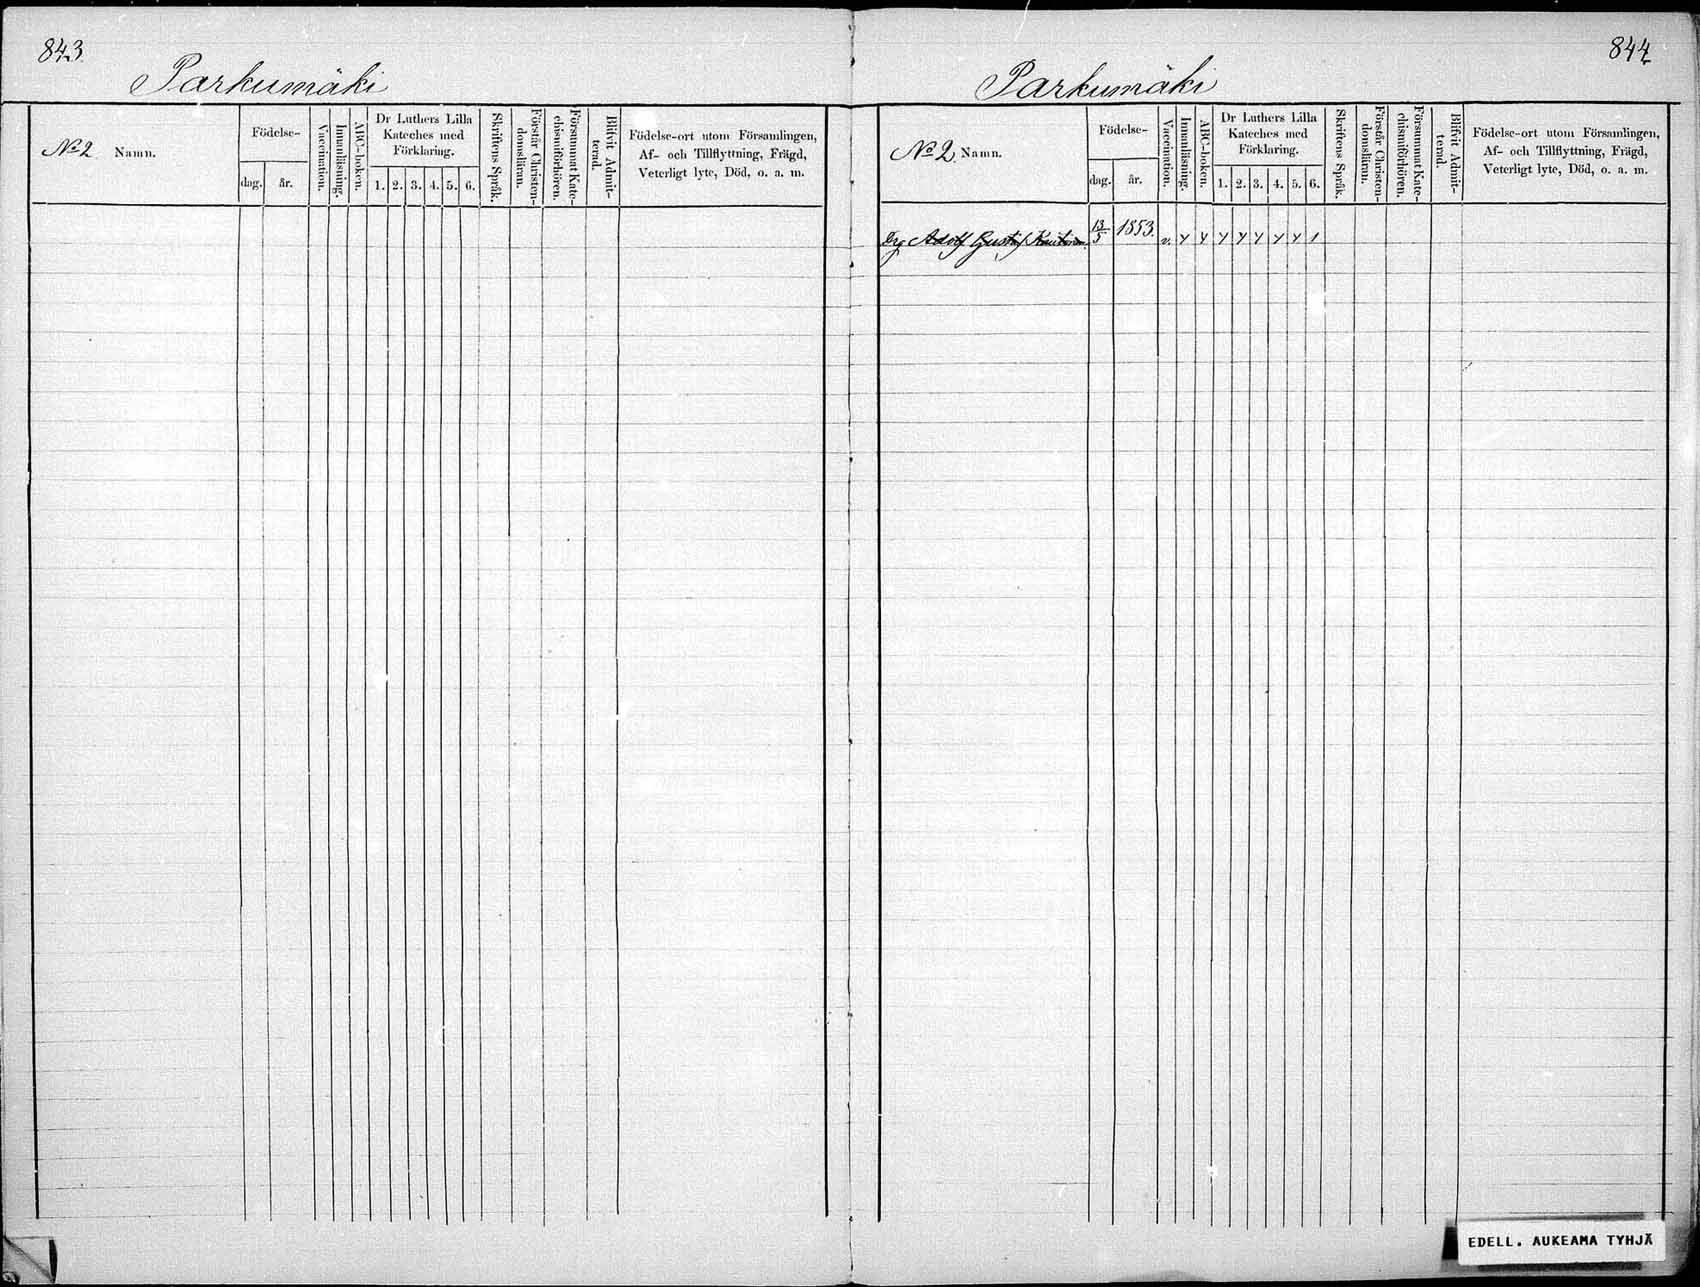 843.
Parkumäki
No 2 Namn.
Födelse-
dag. år.
Vaccination.
Innanläsning.
ABC-boken.
Dr Luthers Lilla
Kateches med
Förklaring.
1. 2. 3. 4. 5. 6.
Skriftens Språk.
Förstår Christen-
domsläran.
Försummat Kate-
chismiförhören.
Blifvit Admit-
terad.
Födelse-ort utom Församlingen,
Af- och Tillflyttning, Frägd,
Veterligt lyte, Död, o. a. m.
844
Parkumäki
No 2. Namn.
Födelse-
dag. år.
Vaccination.
Innanläsning.
ABC-boken.
Dr Luthers Lilla
Kateches med
Förklaring.
1. 2. 3. 4. 5. 6.
Skriftens Språk.
Förstår Christen-
domsläran.
Försummat Kate-
chismiförhören.
Blifvit Admit-
terad.
Födelse-ort utom Församlingen,
Af- och Tillflyttning, Frägd,
Veterligt lyte, Död, o. a. m.
Drg Adolf Gustaf 13/5 1853. v.
EDELL. AUKEAMA TYHJÄ